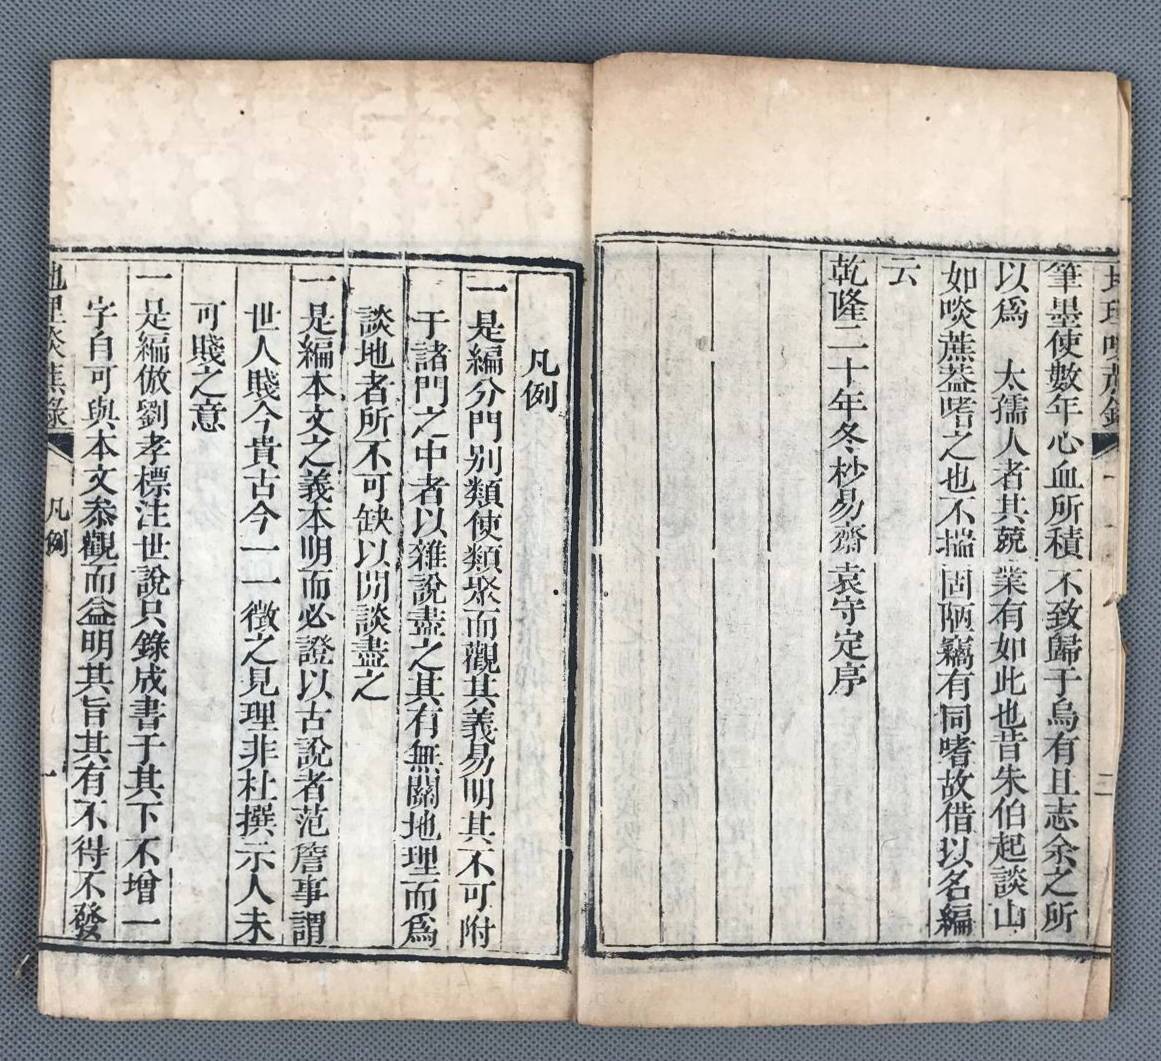 地理啖蔗錄
二
筆墨使數年心血所積不致歸于烏有且志余之所
以爲 太孺人者其兢業有如此也昔朱伯起談山
如啖蔗葢嗜之也不揣固陋竊有同嗜故借以名編
云
乾隆二十年冬杪易齋袁守定序
凡例
一是編分門别類使類聚而觀其義易明其不可附
于諸門之中者以雜說盡之其有無關地理而爲
談地者所不可缺以閒談盡之
一是編本文之義本明而必證以古說者范詹事謂
世人賤今貴古今一一徵之見理非杜撰示人未
可賤之意
一是編倣劉孝標注世說只錄成書于其下不增一
字自可與本文叅觀而益明其旨其有不得不發
地理啖蔗錄
凡例
一